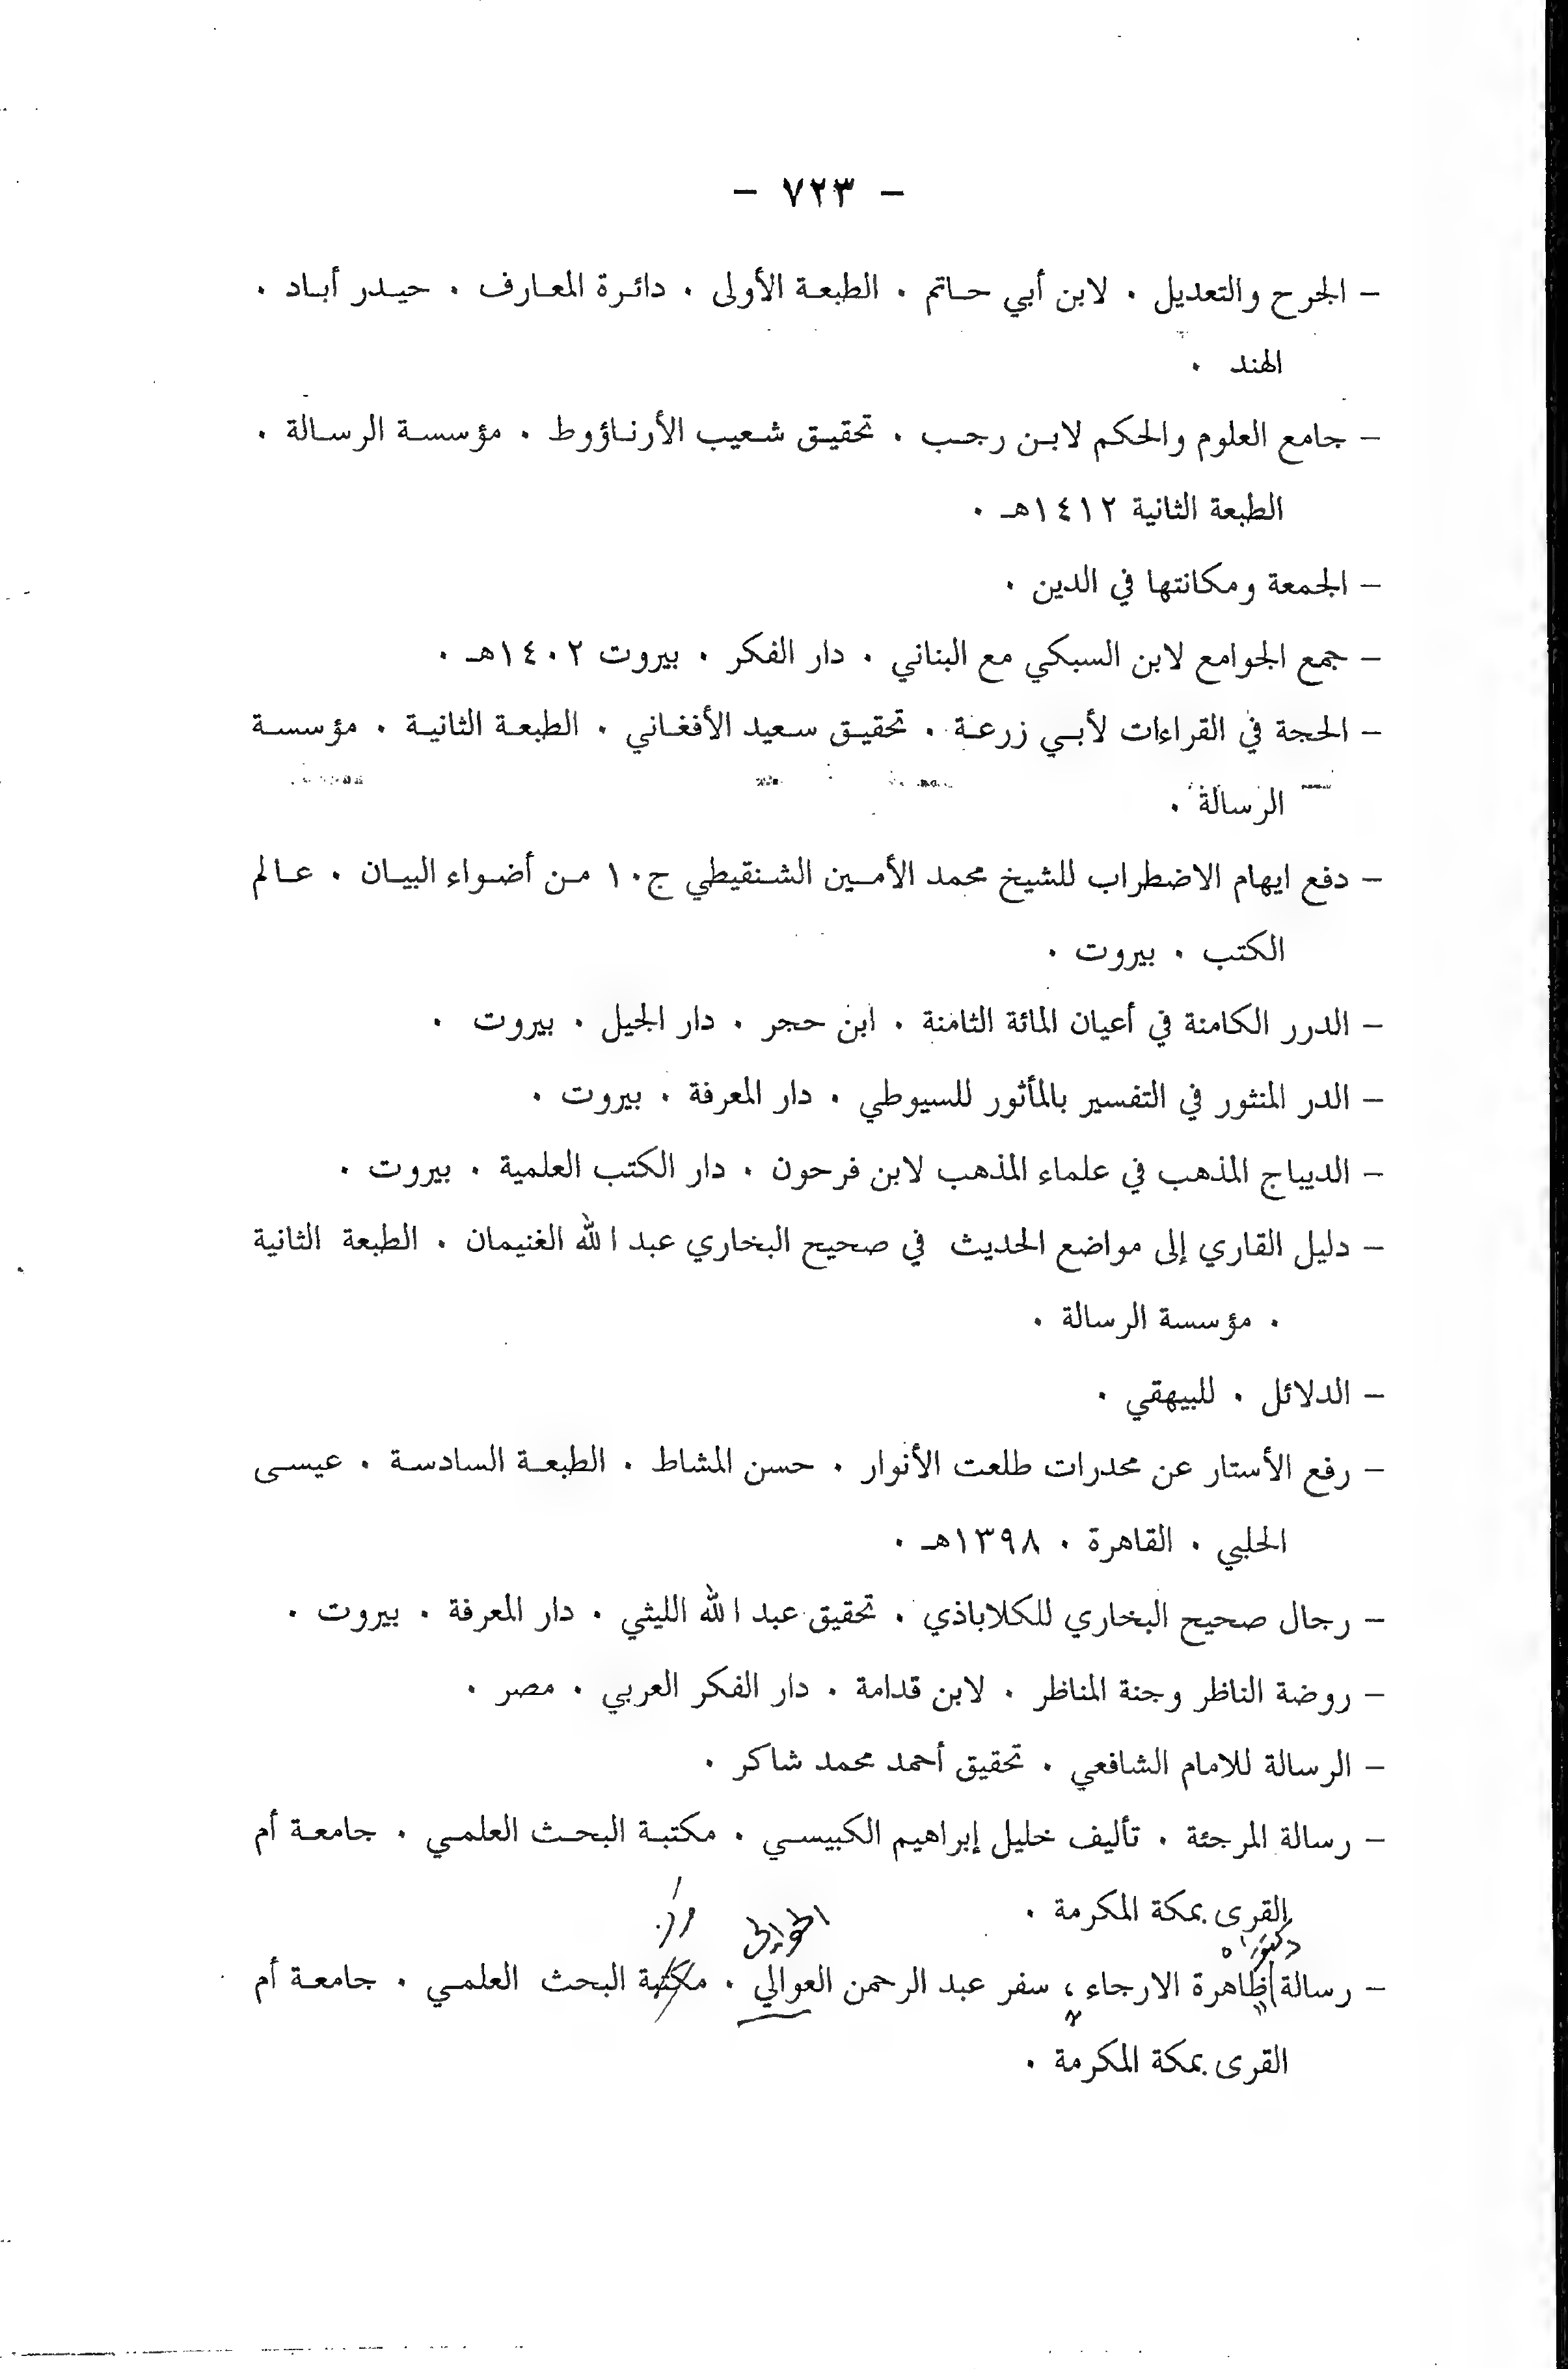 - ٧٢٣ -
- الجرح والتعديل . لابن أبي حاتم . الطبعة الأولى . دائرة المعارف . حيدر أباد .
الهند .
- جامع العلوم والحكم لابن رجب . تحقيق شعيب الأرناؤوط . مؤسسة الرسالة .
الطبعة الثانية ١٤١٢هـ .
- الجمعة ومكانتها في الدين .
- جمع الجوامع لابن السبكي مع البناني . دار الفكر . بيروت ١٤٠٢هـ .
- الحجة في القراءات لأبي زرعة . تحقيق سعيد الأفغاني . الطبعة الثانية . مؤسسة
الرسالة .
- دفع ايهام الاضطراب للشيخ محمد الأمين الشنقيطي ج١٠ من أضواء البيان . عالم
الكتب . بيروت .
- الدرر الكامنة في أعيان المائة الثامنة . ابن حجر . دار الجيل . بيروت .
- الدر المنثور في التفسير بالمأثور للسيوطي . دار المعرفة . بيروت .
- الديباج المذهب في علماء المذهب لابن فرحون . دار الكتب العلمية . بيروت .
- دليل القاري إلى مواضع الحديث في صحيح البخاري عبد الله الغنيمان . الطبعة الثانية
. مؤسسة الرسالة .
- الدلائل . للبيهقي .
- رفع الأستار عن محدرات طلعت الأنوار . حسن المشاط . الطبعة السادسة . عيسى
الحلبي . القاهرة . ١٣٩٨هـ .
- رجال صحيح البخاري للكلاباذي . تحقيق عبد الله الليثي . دار المعرفة . بيروت .
- روضة الناظر وجنة المناظر . لابن قدامة . دار الفكر العربي . مصر .
- الرسالة للامام الشافعي . تحقيق أحمد محمد شاكر .
- رسالة المرجئة . تأليف خليل إبراهيم الكبيسي . مكتبة البحث العلمي . جامعة أم
القرى بمكة المكرمة .
دكتوراه الحوالي
- رسالة ظاهرة الارجاء ، سفر عبد الرحمن العوالي . مكتبة البحث العلمي . جامعة أم
القرى بمكة المكرمة .